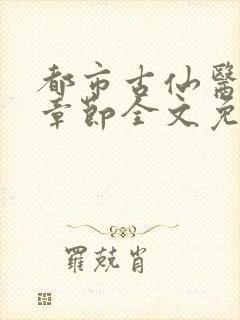 都市古仙醫
章節全文免
羅兢肖